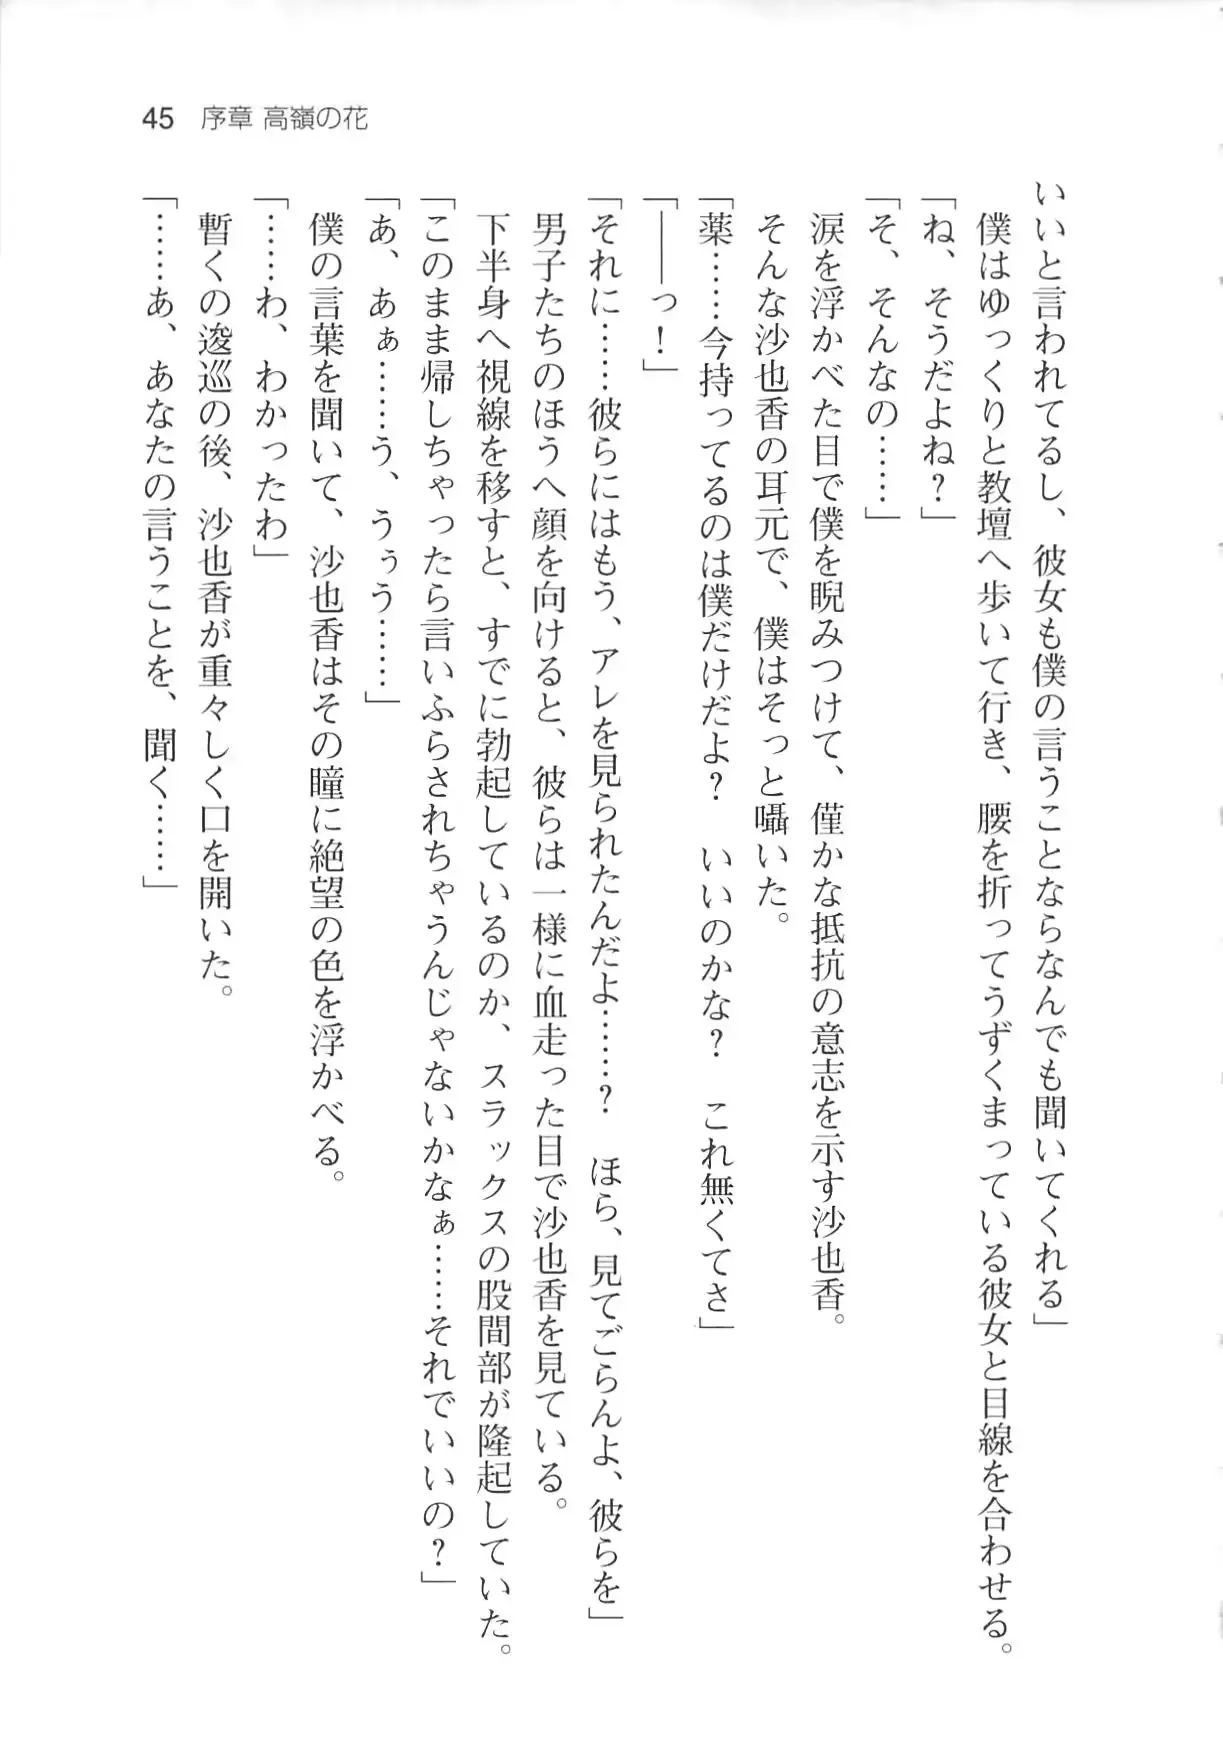 45 序章 高嶺の花
いいと言われてるし、彼女も僕の言うことならなんでも聞いてくれる」
僕はゆっくりと教壇へ歩いて行き、腰を折ってうずくまっている彼女と目線を合わせる。
「ね、そうだよね?」
「そ、そんなの……」
涙を浮かべた目で僕を睨みつけて、僅かな抵抗の意志を示す沙也香。
そんな沙也香の耳元で、僕はそっと囁いた。
「薬……今持ってるのは僕だけだよ? いいのかな? これ無くてさ」
「――っ!」
「それに……彼らにはもう、アレを見られたんだよ……? ほら、見てごらんよ、彼らを」
男子たちのほうへ顔を向けると、彼らは一様に血走った目で沙也香を見ている。
下半身へ視線を移すと、すでに勃起しているのか、スラックスの股間部が隆起していた。
「このまま帰しちゃったら言いふらされちゃうんじゃないかなぁ……それでいいの?」
「あ、あぁ……う、うぅう……」
僕の言葉を聞いて、沙也香はその瞳に絶望の色を浮かべる。
「……わ、わかったわ」
暫くの逡巡の後、沙也香が重々しく口を開いた。
「……あ、あなたの言うことを、聞く……」